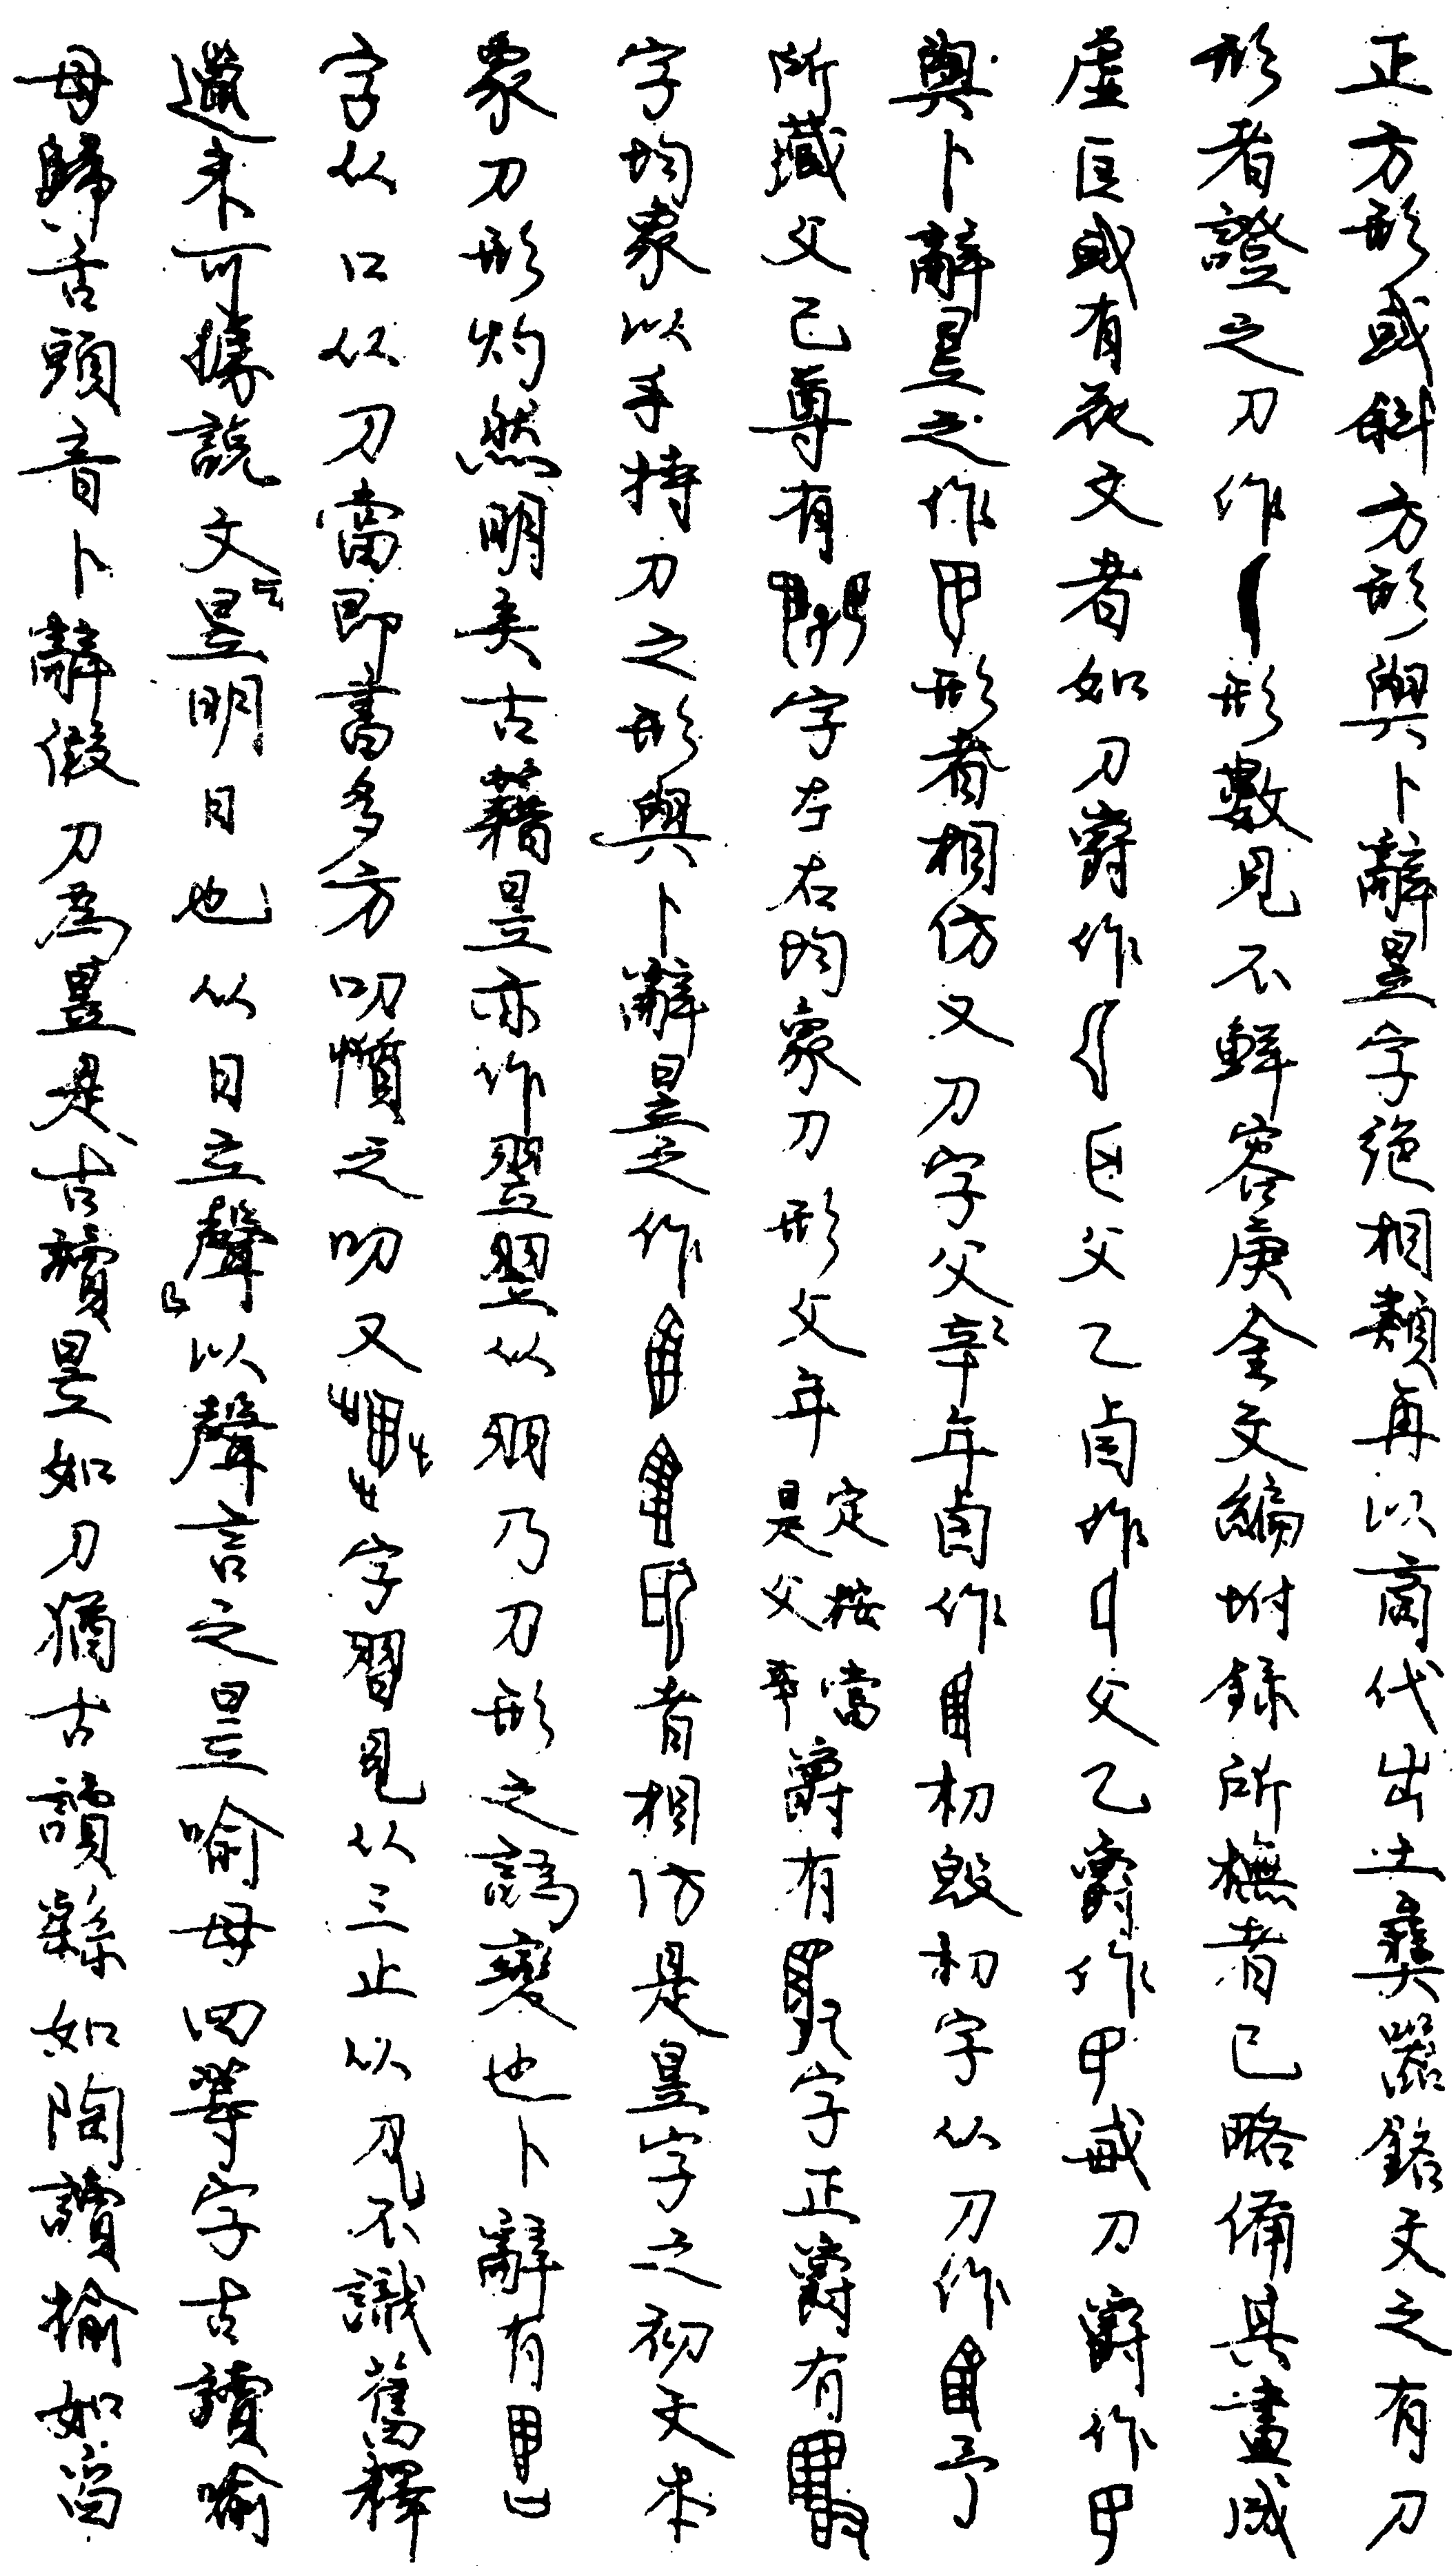 正方形或斜方形與卜辭昱字絕相類再以商代出土彝器銘文之有刀
形者證之刀作形數見不鮮容庚金文編坿錄所橅者已略備其畫成
虛匡或有花文者如刀爵作匕父乙卣作父乙爵作或刀爵作
與卜辭昱之作形者相仿又刀字父辛年卣作杒毀杒字从刀作予
所藏父己尊有字左右均象刀形父年定按當是父辛爵有字正爵有
字均象以手持刀之形與卜辭昱之作者相仿是昱字之初文本
象刀形灼然明矣古藉昱亦作翌翌从羽乃刀形之譌變也卜辭有
字从口从刀當即書多方叨懫之叨又字習見从三止从刀不識舊釋
邋未可據說文「昱明日也从日立聲」以聲言之昱喻母四等字古讀喻
母歸舌頭音卜辭假刀為昱是古讀昱如刀猶古讀繇如陶讀揄如舀